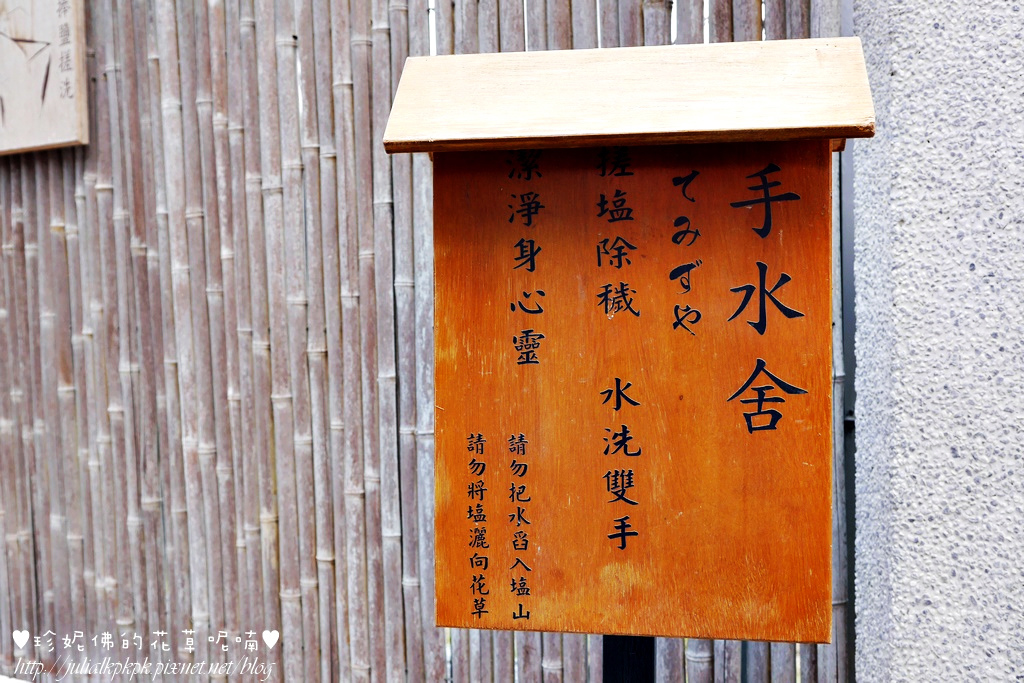 手水舍
てみずや
搓塩除穢 水洗雙手
潔淨身心靈
請勿把水舀入塩山
請勿將塩灑向花草
搓洗
♥珍妮佛的花草呢喃♥
http://julialkpkpk.pixnet.net/blog